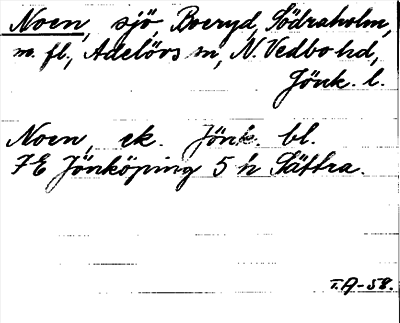 Noen, sjö, Boeryd, Södraholm,
m. fl., Adelövs sn, N. Vedbo hd,
Jönk. l.
Noen, ek. Jönk. bl.
7E Jönköping 5 h Sättra.
T.A-58.